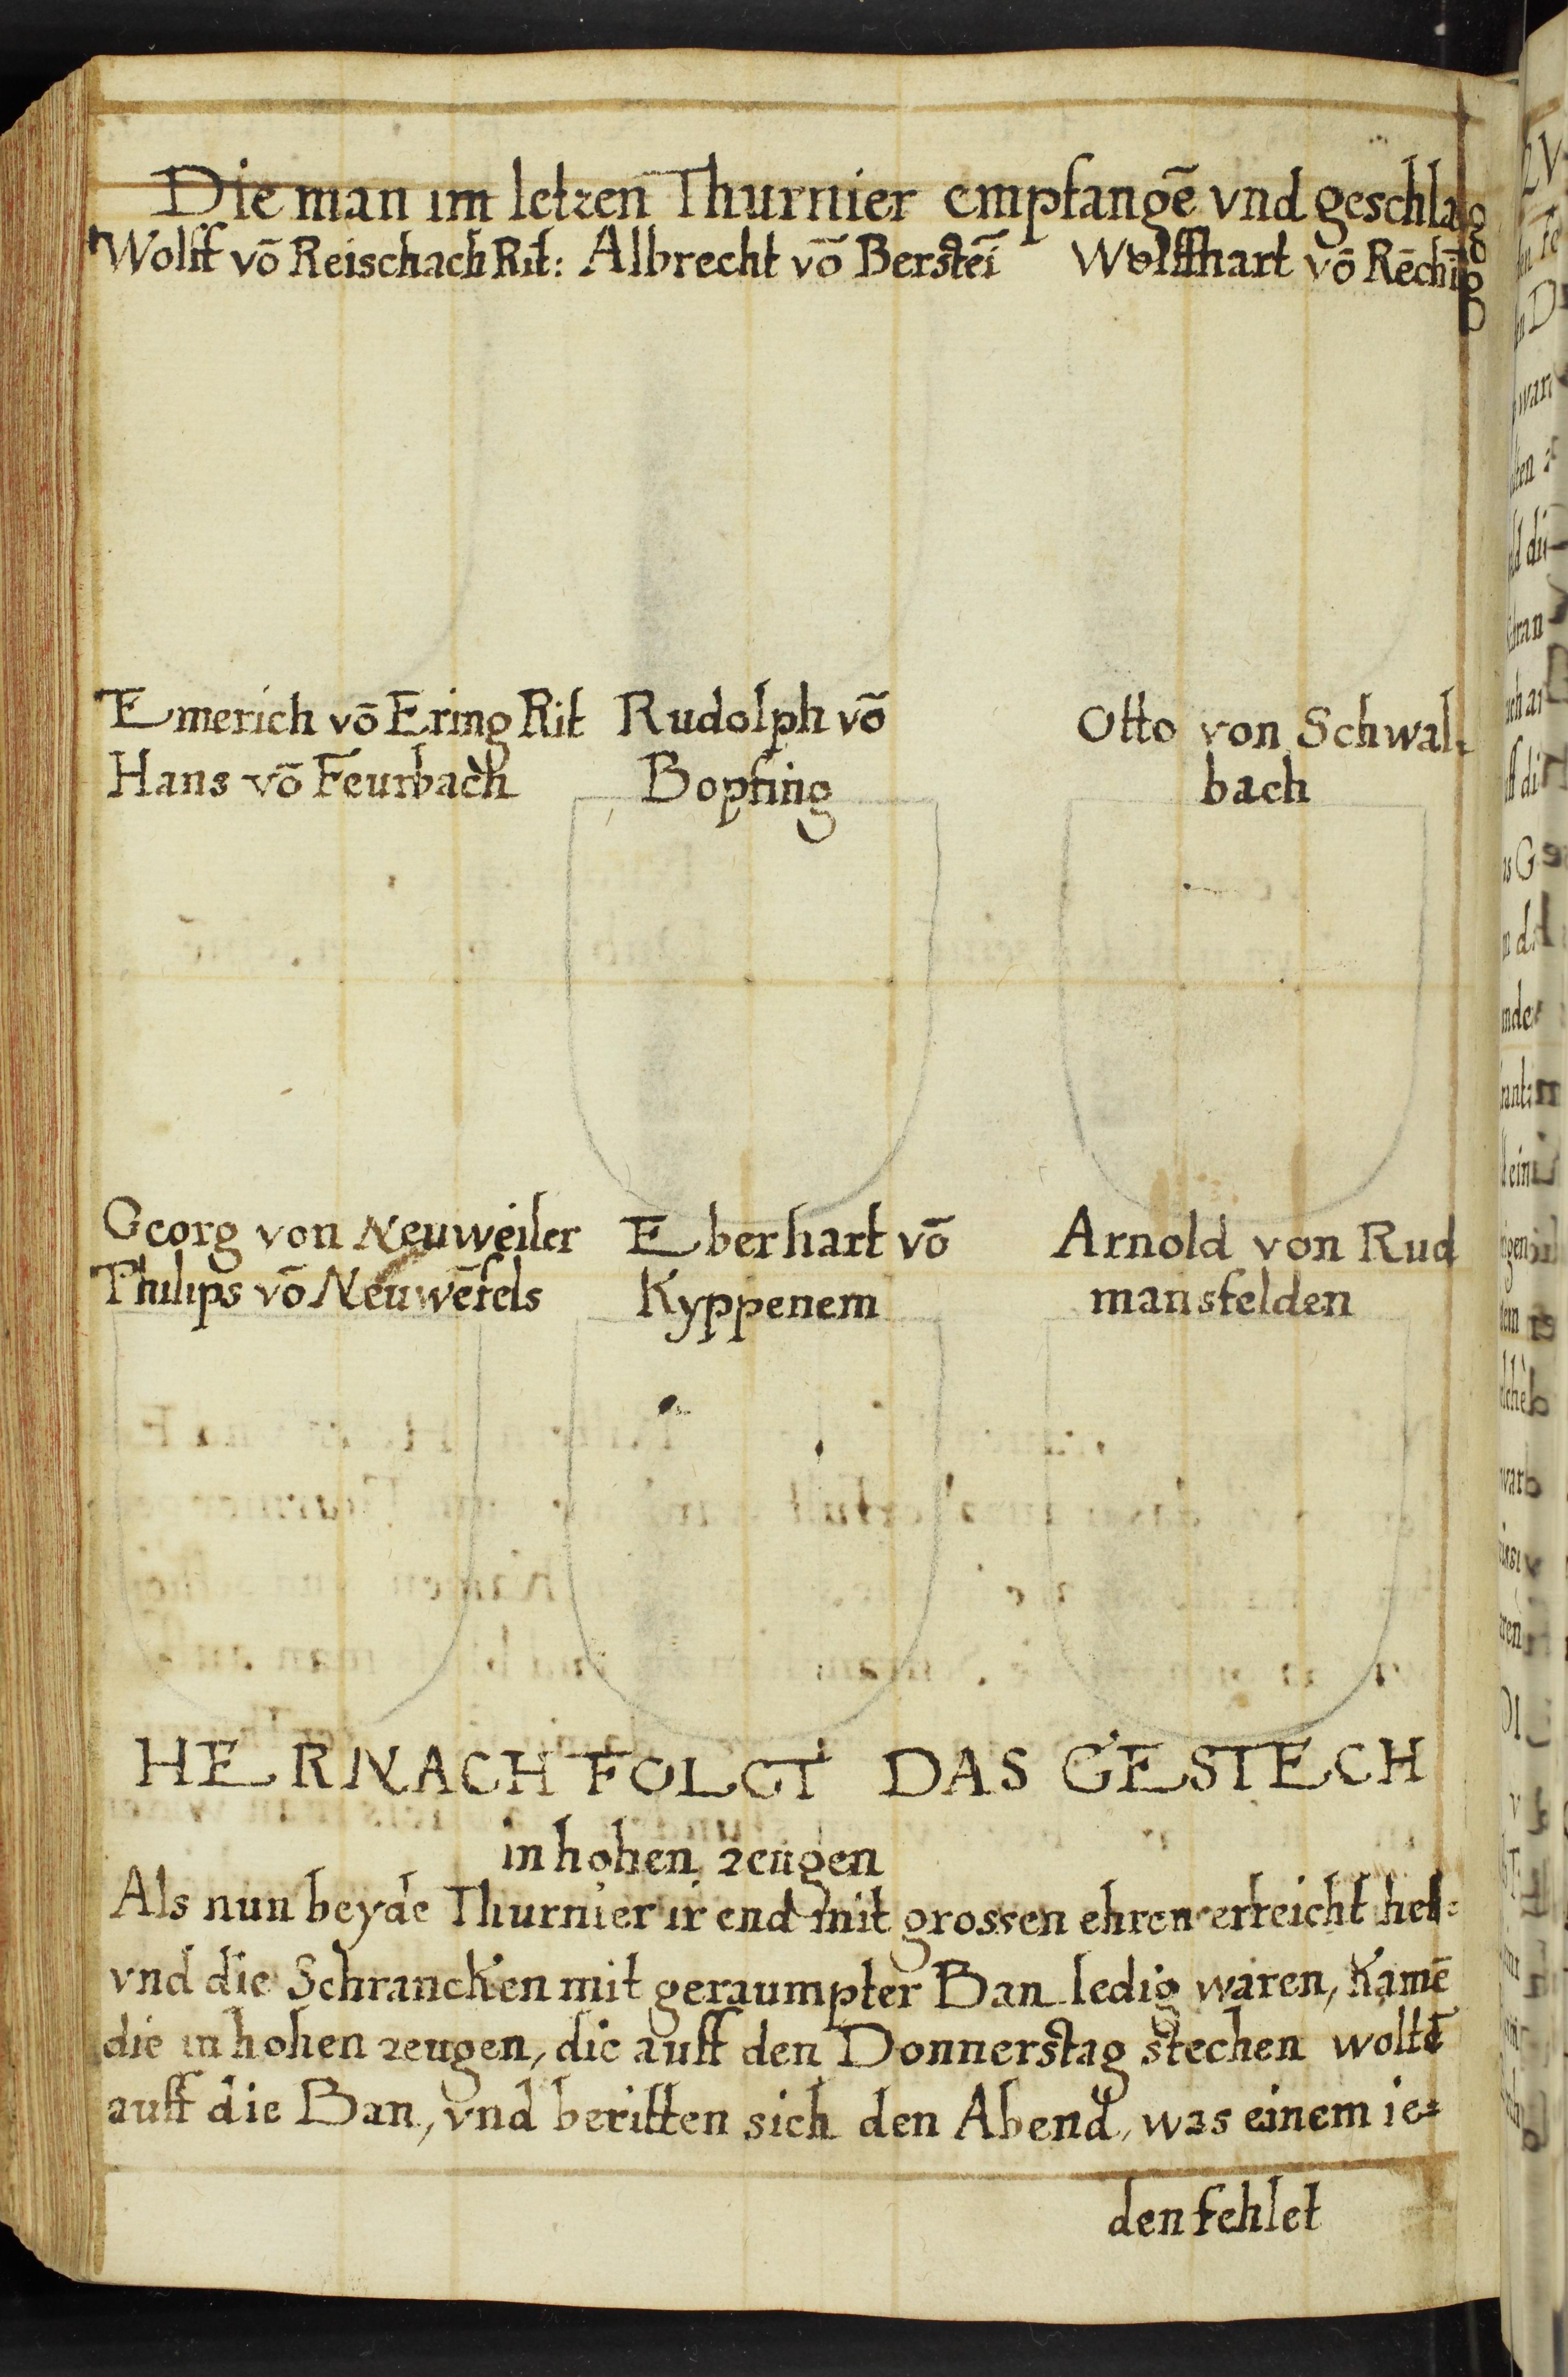 Die man im letzen Thurnier empfangē vnd geschlag
Wolff vō Reischach Rit: Albrecht vō Berstēi Wolffhart vō Rēchīg
Emerich vō Ering Rit Rudolph vō Otto von Schwal-
Hans vō Feurbach Bopfing bach
Georg von Neuweiler Eberhart vō Arnold von Rud
Philips vō Neuwēfels Kyppenem mansfelden
HERNACH FOLGT DAS GESTECH
in hohen zeugen
Als nun beyde Thurnier ir end mit grossen ehren erreicht het=
vnd die Schrancken mit geraumpter Ban ledig waren, kamē
die in hohen zeugen, die auff den Donnerstag stechen woltē
auff die Ban, vnd beritten sich den Abend, was einem ie=
den fehlet